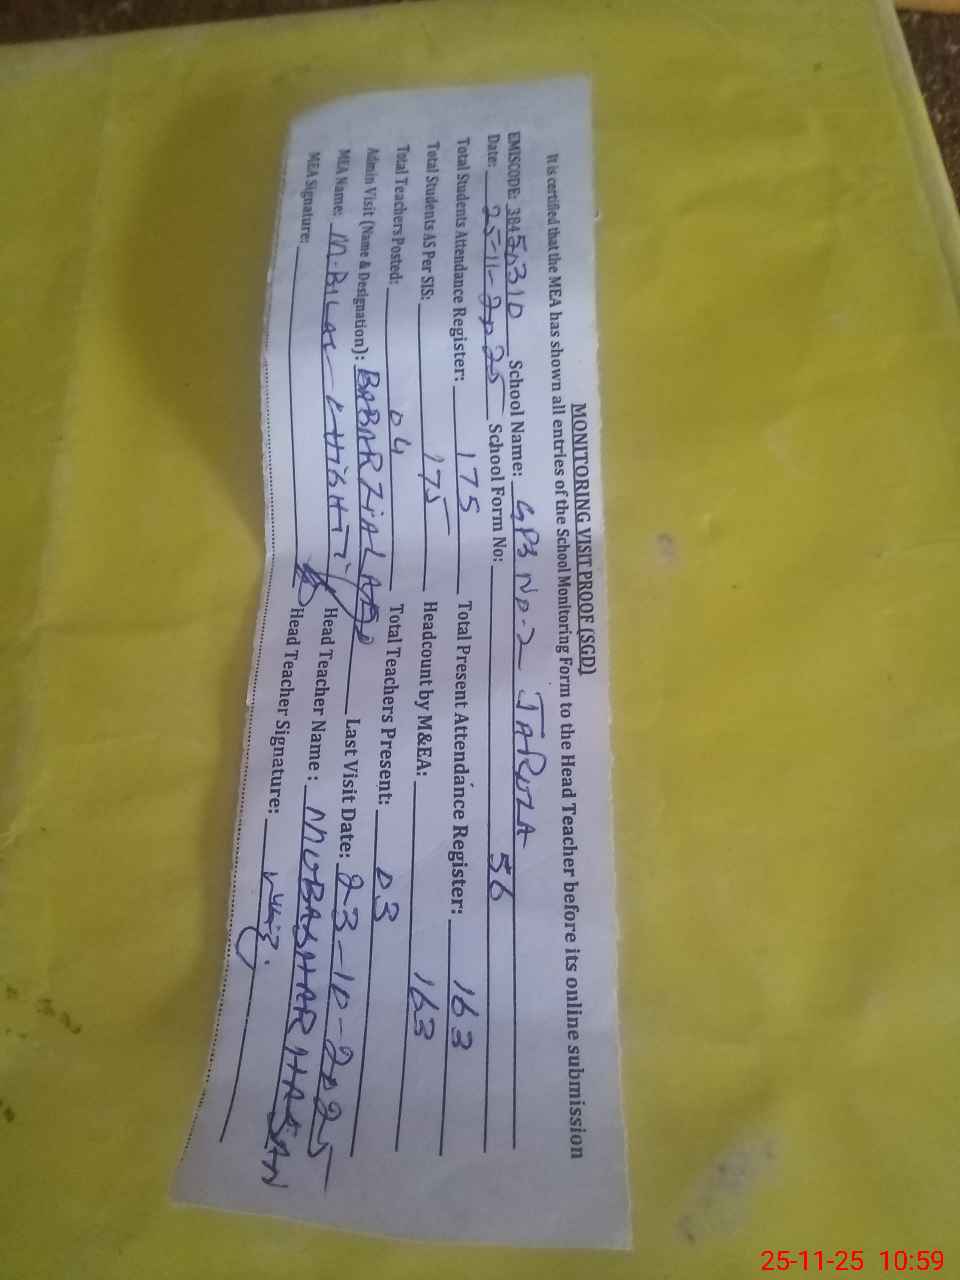 MONITORING VISIT PROOF (SGD)
It is certified that the MEA has shown all entries of the School Monitoring Form to the Head Teacher before its online submission
EMISCODE: 38450310 School Name: GPS No-2 JAROLA
Date: 25-11-2025 School Form No: 56
Total Students Attendance Register: 175 Total Present Attendance Register: 163
Total Students AS Per SIS: 175 Headcount by M&EA: 163
Total Teachers Posted: 04 Total Teachers Present: 03
Admin Visit (Name & Designation): BABAR ZiAL AEO Last Visit Date: 23-10-2025
MEA Name: M. BILAL Head Teacher Name: MUBASHAR HASAN
MEA Signature: Head Teacher Signature:
25-11-25 10:59